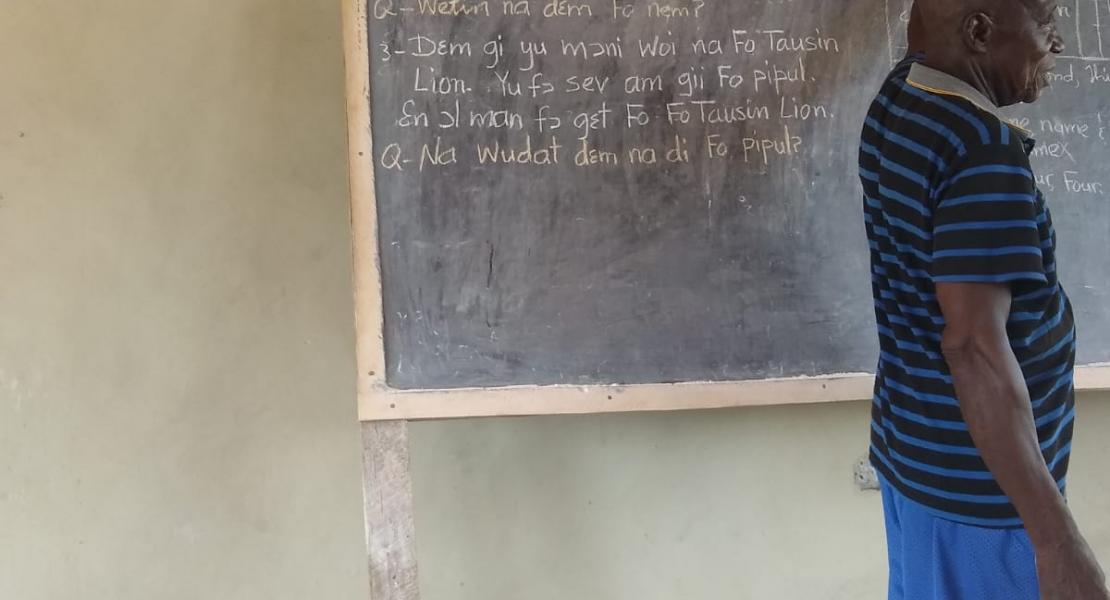 Q-Wetin na dɛm Fo nem?
3-Dɛm gi yu mɔni woi na Fo Tausin
Lion. Yu fɔ sev am gii Fo pipul.
Ɛn ɔl man fɔ gɛt Fo Fo Tausin Lion.
Q-Na wudat dɛm na di Fo pipul?
name
mex
Four